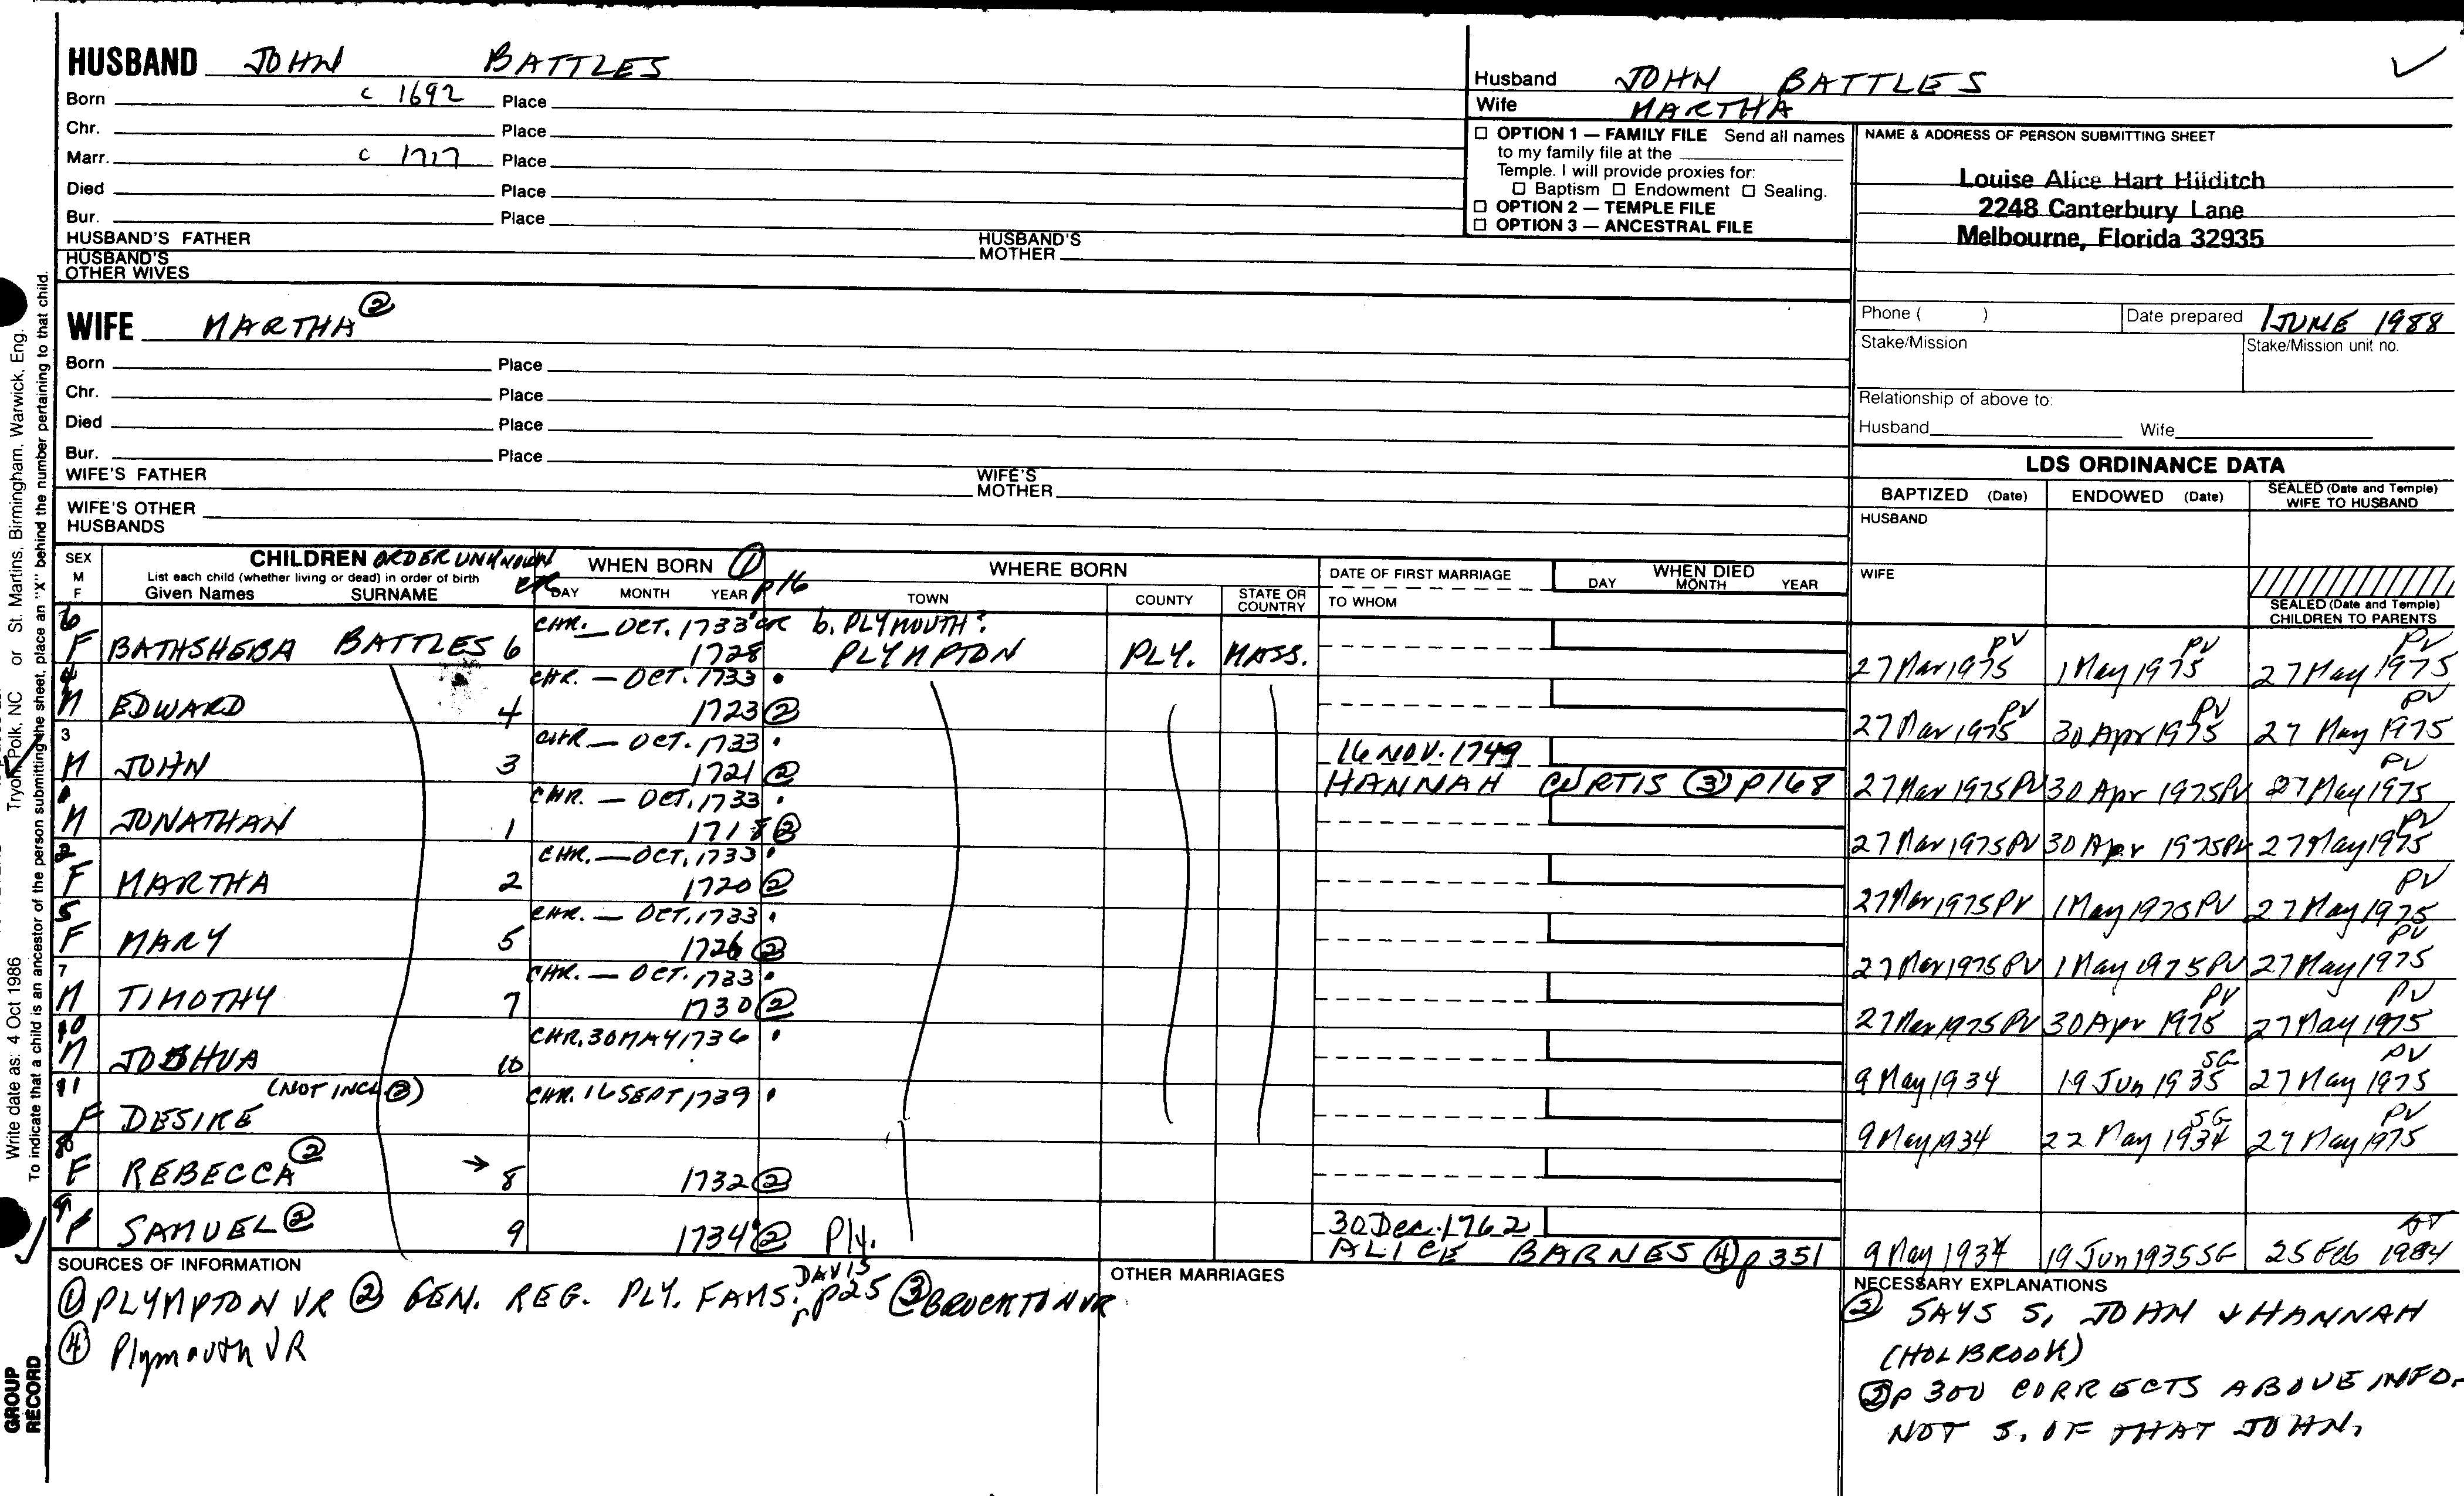 HUSBAND JOHN BATTLES
Born c 1692 Place
Chr. Place
Marr. c 1717 Place
Died Place
Bur. Place
HUSBAND'S FATHER HUSBAND'S MOTHER
HUSBAND'S OTHER WIVES
Husband JOHN BATTLES
Wife MARTHA
☐ OPTION 1 — FAMILY FILE Send all names
to my family file at the
Temple. I will provide proxies for:
☐ Baptism ☐ Endowment ☐ Sealing.
☐ OPTION 2 — TEMPLE FILE
☐ OPTION 3 — ANCESTRAL FILE
NAME & ADDRESS OF PERSON SUBMITTING SHEET
Louise Alice Hart Hilditch
2248 Canterbury Lane
Melbourne, Florida 32935
WIFE MARTHA ②
Born Place
Chr. Place
Died Place
Bur. Place
WIFE'S FATHER WIFE'S MOTHER
WIFE'S OTHER HUSBANDS
Phone ( ) Date prepared 1 JUNE 1988
Stake/Mission Stake/Mission unit no.
Relationship of above to:
Husband Wife
LDS ORDINANCE DATA
BAPTIZED (Date) ENDOWED (Date) SEALED (Date and Temple) WIFE TO HUSBAND
HUSBAND
WIFE
SEALED (Date and Temple) CHILDREN TO PARENTS
SEX M F
CHILDREN ORDER UNKNOWN
List each child (whether living or dead) in order of birth
Given Names SURNAME
WHEN BORN ① p16
DAY MONTH YEAR
WHERE BORN
TOWN COUNTY STATE OR COUNTRY
DATE OF FIRST MARRIAGE
TO WHOM
WHEN DIED
DAY MONTH YEAR
6 CHR. — OCT. 1733 b. PLYMOUTH?
F BATHSHEBA BATTLES 6 1728 PLYMPTON PLY. MASS. 27 Mar 1975 PV 1 May 1975 PV 27 May 1975 PV
4 CHR. — OCT. 1733
M EDWARD 4 1723 ② 27 Mar 1975 PV 30 Apr 1975 PV 27 May 1975 PV
3 CHR — OCT. 1733 16 NOV. 1749
M JOHN 3 1721 ② HANNAH CURTIS ③ p168 27 Mar 1975 PV 30 Apr 1975 PV 27 May 1975 PV
1 CHR. — OCT. 1733
M JONATHAN 1 1718 ② 27 Mar 1975 PV 30 Apr 1975 PV 27 May 1975 PV
2 CHR. — OCT. 1733
F MARTHA 2 1720 ② 27 Mar 1975 PV 1 May 1975 PV 27 May 1975 PV
5 CHR. — OCT. 1733
F MARY 5 1726 ② 27 Mar 1975 PV 1 May 1975 PV 27 May 1975 PV
7 CHR. — OCT. 1733
M TIMOTHY 7 1730 ② 27 Mar 1975 PV 30 Apr 1975 PV 27 May 1975 PV
10 CHR. 30 MAY 1736
M JOSHUA 10 9 May 1934 19 Jun 1935 SG 27 May 1975 PV
11 (NOT INCL ②) CHR. 16 SEPT 1739
F DESIRE 9 May 1934 22 May 1934 SG 27 May 1975 PV
8
F REBECCA ② → 8 1732 ②
9 30 Dec. 1762
SAMUEL ② 9 1734 ② Ply. ALICE BARNES ④ p 351 9 May 1934 19 Jun 1935 SG 25 Feb 1984
SOURCES OF INFORMATION
① PLYMPTON VR ② GEN. REG. PLY. FAMS. DAVIS p25 ③ BROCKTON VR
④ Plymouth VR
OTHER MARRIAGES
NECESSARY EXPLANATIONS
② SAYS S. JOHN & HANNAH
(HOLBROOK)
② p 300 CORRECTS ABOVE INFO.
NOT S. OF THAT JOHN.
Write date as: 4 Oct 1986 Tryon, Polk, NC or St. Martins, Birmingham, Warwick, Eng.
To indicate that a child is an ancestor of the person submitting the sheet, place an "X" behind the number pertaining to that child.
GROUP RECORD